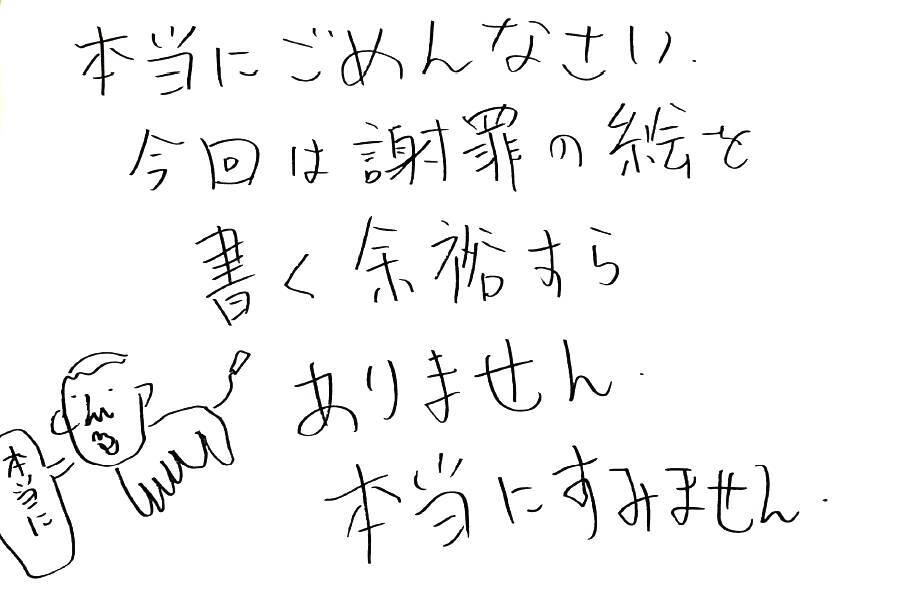 本当にごめんなさい.
今回は謝罪の絵を
書く余裕すら
ありません.
本当にすみません.
本当に